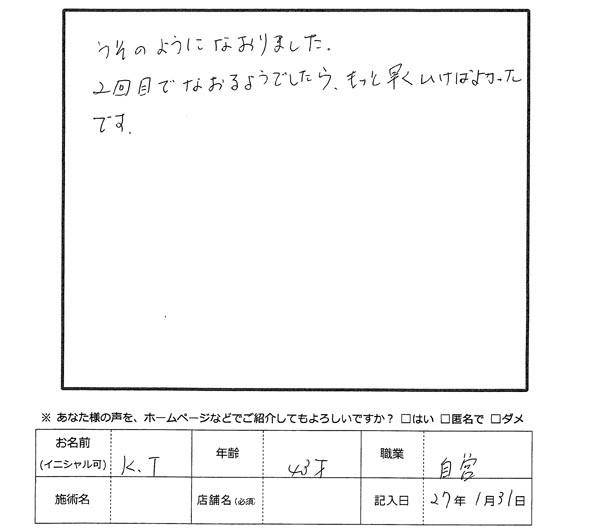 うそのようになおりました.
2回目でなおるようでしたら、もっと早くいけばよかった
です.
※ あなた様の声を、ホームページなどでご紹介してもよろしいですか? □はい □匿名で □ダメ
お名前
(イニシャル可)
K.T
年齢
43才
職業
自営
施術名
店舗名(必須)
記入日
27年 1月31日